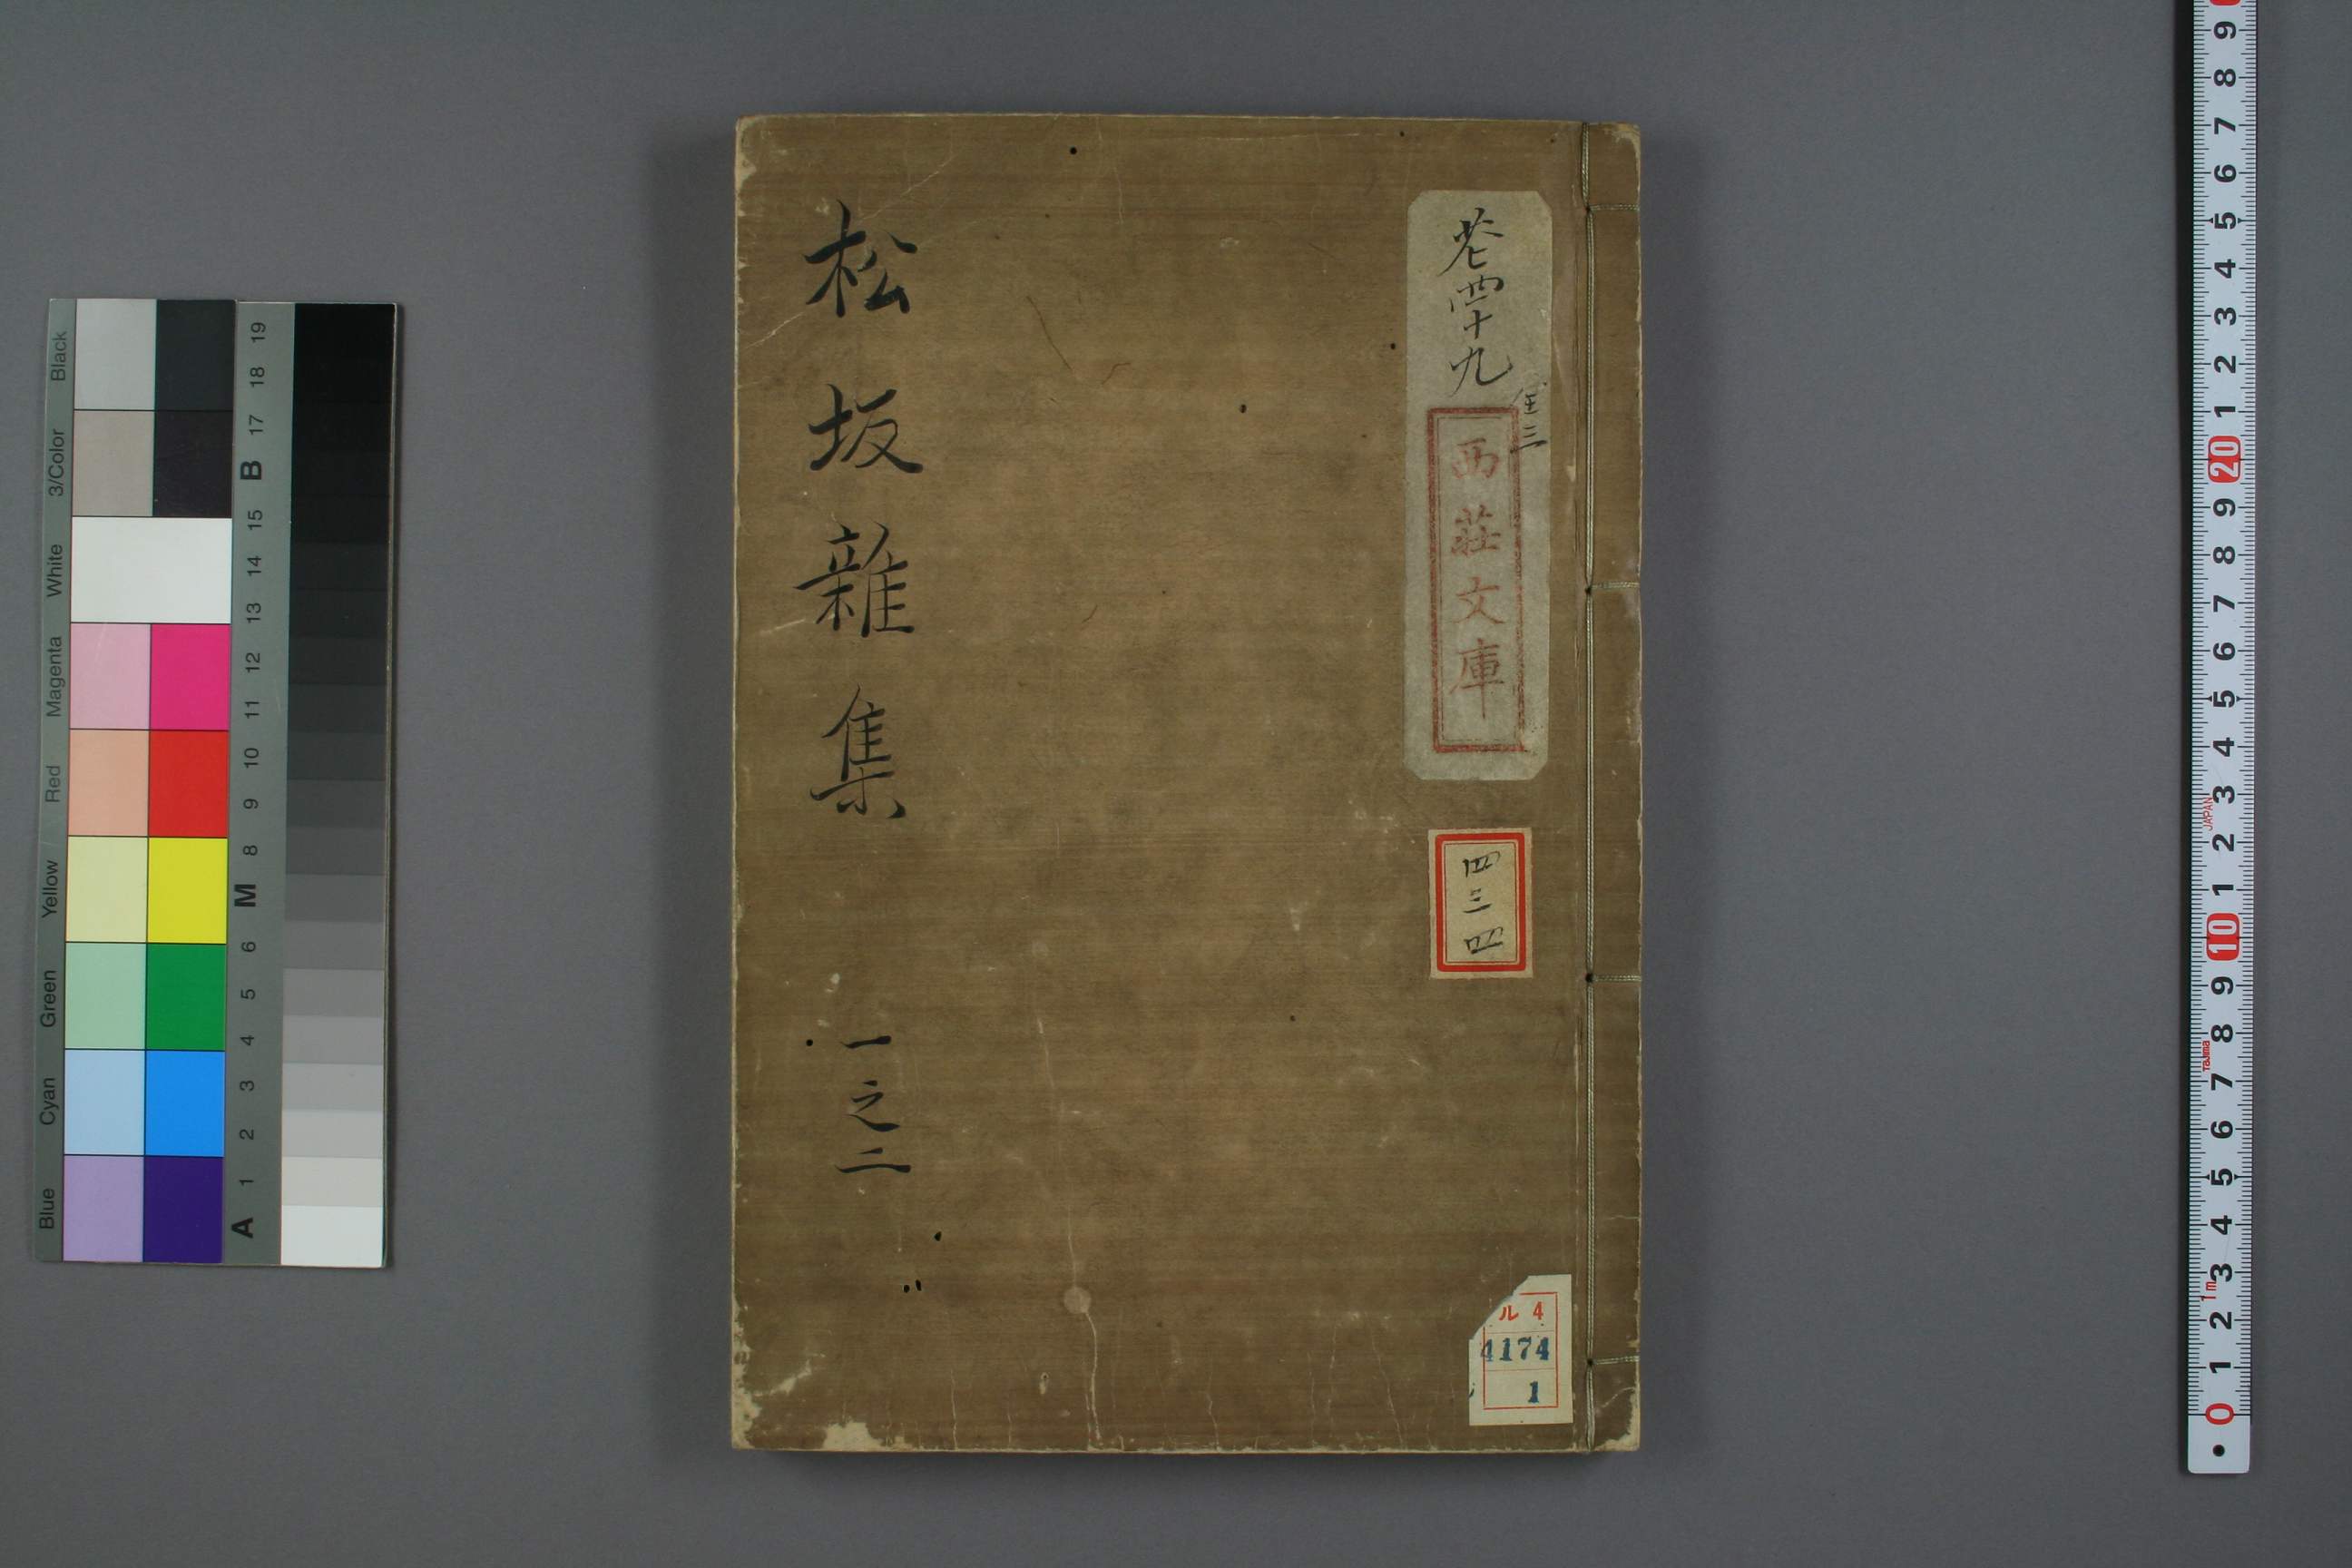 巻四十九
全三
西荘文庫
四三四
松坂雜集 一之二
ル 4
4174
1
Black
3/Color
White
Magenta
Red
Yellow
Green
Cyan
Blue
19
18
17
B
15
14
13
12
11
10
9
8
M
6
5
4
3
2
1
A
9
8
7
6
5
4
3
2
1
20
9
8
7
6
5
4
3
JAPAN
2
1
10
9
8
Tajima
7
6
5
4
3
1m
2
1
0